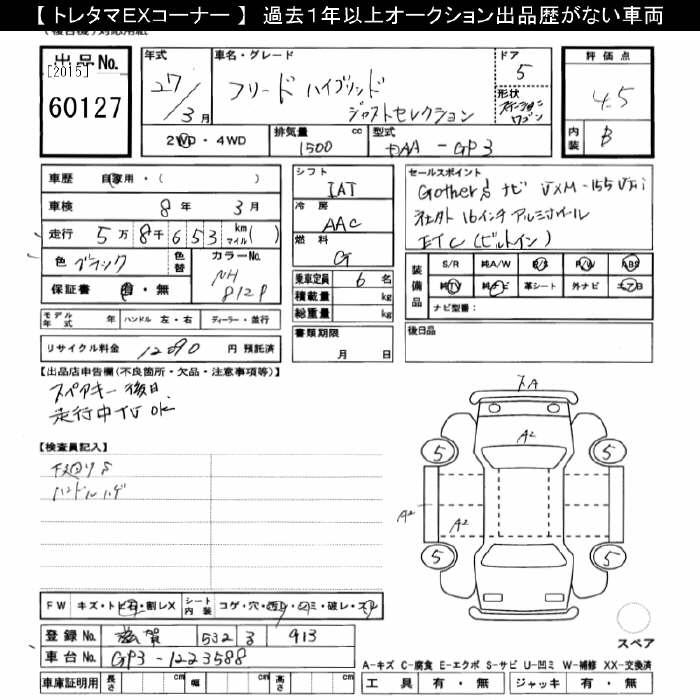 【 トレタマEXコーナー 】 過去1年以上オークション出品歴がない車両
出品No.
[2015]
60127
年式 27/3月
車名・グレード フリード ハイブリッド
ジャストセレクション
ドア 5
形状 ステーションワゴン
評価点 4.5
内装 B
2WD・4WD
排気量 1500 cc
型式 DAA-GP3
車歴 自家用・( )
車検 8年 3月
走行 5万8千653 km マイル( )
色 ブラック
色替
カラーNo. NH 812P
保証書 有・無
シフト IAT
冷房 AAC
燃料 G
乗車定員 6名
積載量 kg
総重量 kg
書類期限 月 日
セールスポイント
Gathers ナビ VXM-155VFi
社外16インチアルミホイール
ETC(ビルトイン)
装備品 S/R 純A/W P/S P/W ABS
純TV 純ナビ 革シート 外ナビ エアB
ナビ型番：
後日品
モデル年式 年 ハンドル 左・右 ディーラー・並行
リサイクル料金 12090 円 預託済
【出品店申告欄(不良箇所・欠品・注意事項等)】
スペアキー後日
走行中TV OK
【検査員記入】
下廻りS
ハンドルハゲ
スA
A2
5 5
A2 A2
5 5
スペア
FW キズ・トビ石・割レX
シート内装 コゲ・穴・・・破レ・スレ
登録No. 滋賀 532 ３ 913
車台No. GP3-1223588
車庫証明用 長さ cm 幅 cm 高さ cm
A-キズ C-腐食 E-エクボ S-サビ U-凹ミ W-補修 XX-交換済
工具 有・無 ジャッキ 有・無